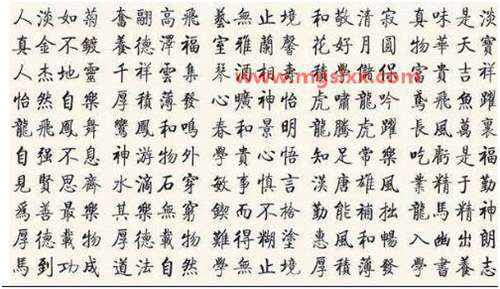 人淡如菊 奮翮高飛 藝無止境 和敬清寂 真味是淡
真金不鍍 養德澤福 室雅蘭馨 花好月圓 物華天寶
人杰地靈 千祥雲集 琴 學 富貴吉祥
www.mgslxx.com
怡然自樂 厚積薄發 心曠神怡 虎嘯龍吟 鳶飛魚躍
龍飛鳳舞 鸞鳳和鳴 春和景明 龍騰虎躍 長風萬裏
自强不息 神游物外 學貴心悟 知足常樂 吃虧是福
見賢思齊 水滴石穿 敏事慎言 漢唐雄風 業精于勤
爲善最樂 其樂無窮 鍥而不捨 勤能補拙 龍馬精神
厚德載物 厚德載物 難得糊塗 惠風和暢 入幽出朗
馬到功成 道法自然 學無止境 厚積薄發 學書養志